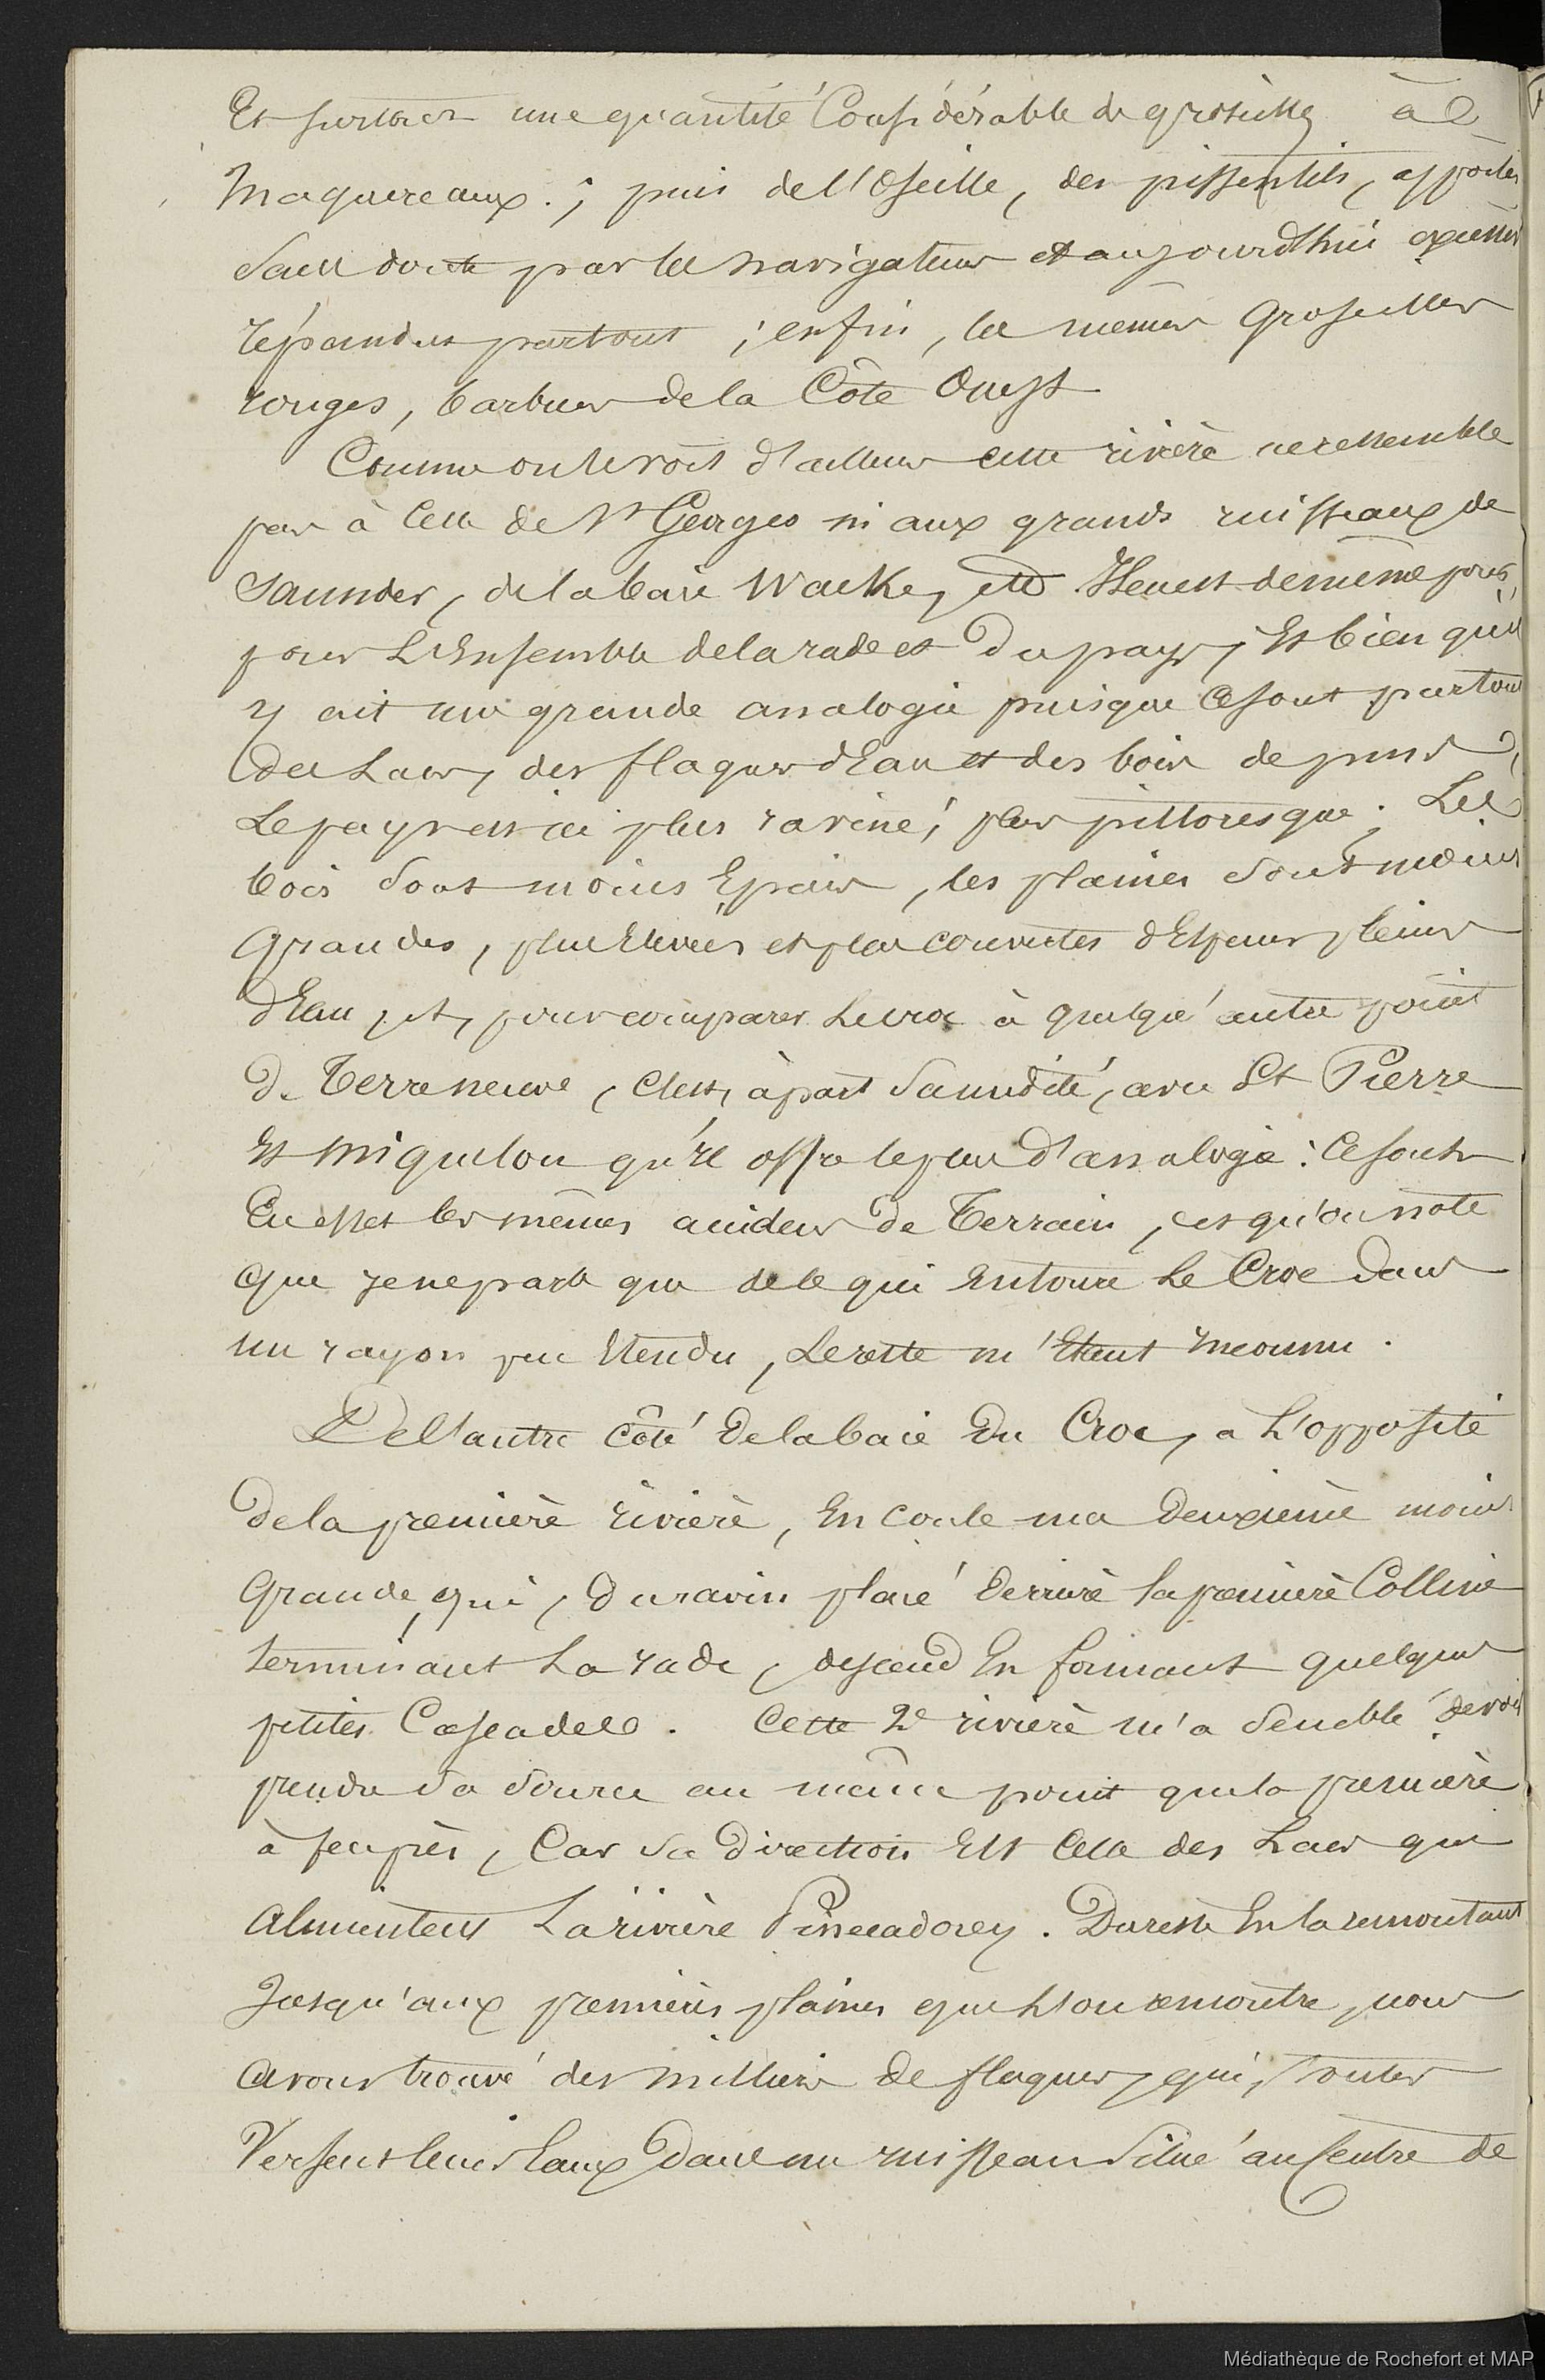 Et surtout une quantité Considérable de groseilles à
Maquereaux ; puis de l'Oseille, des pissenlits, apportés
sans doute par les navigateurs et aujourd'hui
répandus partout ; enfin, les mêmes Groseilles
rouges, barbues de la Côte Ouest
Comme on le voit d'ailleurs cette rivière ne ressemble
pas à Celle de St Georges ni aux grands ruisseaux de
Saunder, de la baie Wacke, etc Il en est de même pour
pour L'Ensemble de la rade et Du pays, Et bien qu'il
y ait une grande analogie puisque Ce sont partout
Des Lacs, des flaques d'Eau et des bois de pins
Le pays est ici plus raviné, plus pittoresque ; Les
bois sont moins Epais, les plaines sont moins
Grandes, plus Elevées et plus couvertes d'Espaces pleins
d'Eau, et, pour comparer Le croc à quelqu'autre point
De Terre neuve, c'est, à part sa nudité, avec St Pierre
Et Miquelon qu'il offre le plus d'analogie : Ce sont
En effet les mêmes accidens de Terrain, et qu'on note
que je ne parle que de ce qui Entoure Le Croc dans
un rayon peu Etendu, Le reste m'Etant Inconnu.
De l'autre Côté De la baie Du Croc, a L'opposite
De la première rivière, En coule une Deuxième moins
Grande, qui, Du ravin placé Derrière la première Colline
terminant La rade, descend En formant quelques
petites Cascades. Cette 2e rivière m'a semblé devoir
prendre sa source au même point que la première
à peu près, Car sa Direction Est Celle des Lacs qui
Alimentent La rivière. Du reste En la remontant
Jusqu'aux premières plaines que L'on rencontre, nous
avons trouvé des milliers de flaques, qui, toutes
Versent leurs Eaux Dans un ruisseau situé au Centre de
Médiathèque de Rochefort et MAP